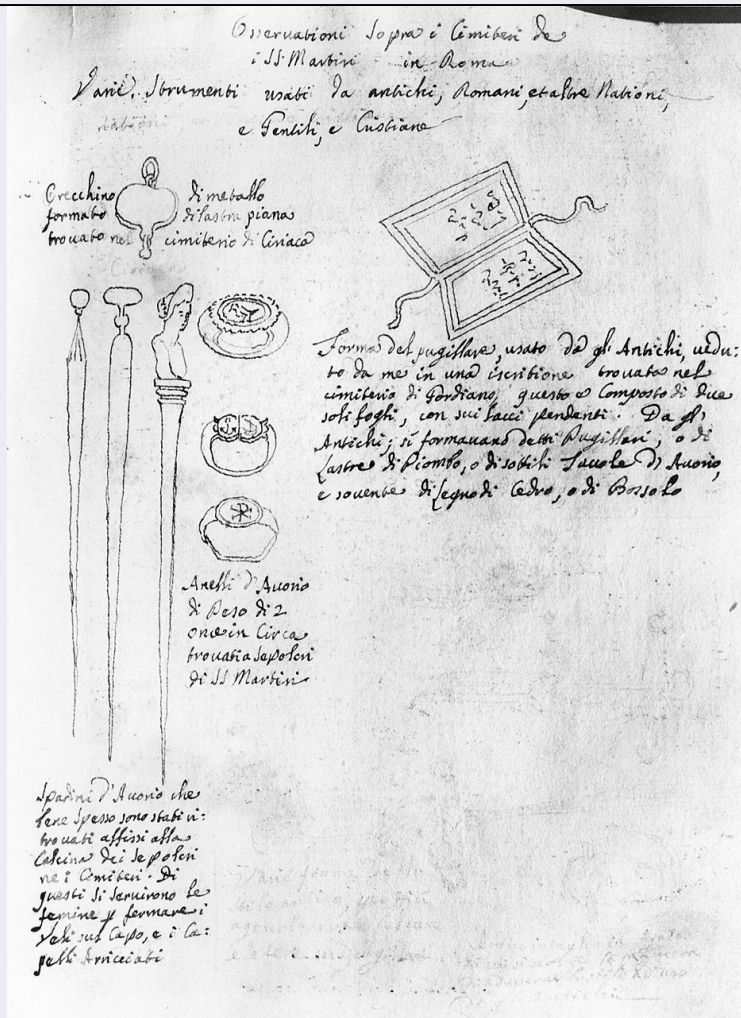 Osservationi Sopra i Cimiteri de
i SS. Martiri in Roma
Varii Strumenti usati da antichi, Romani, et altre Nationi,
e Gentili, e Cristiane
nationi
Orecchino di metallo
formato di lastra piana
trovato nel cimiterio di Ciriaca
Forma del pugillare, usato da gl' Antichi, uedu:
to da me in una iscritione trouata nel
cimiterio di Gordiano, questo è Composto di due
soli fogli, con sui lacci pendenti. Da gl'
Antichi, si formauano detti Pugillari, o di
Lastre di Piombo, o di sottili Tauole d'Auorio,
e souente di Legno di Cedro, o di Bossolo
Anelli d'Auorio
di Peso di 2
oncie in Circa
trouati a Sepolcri
di SS Martiri
Spadini d'Auorio che
bene Spesso sono stati ri:
trouati affissi alla
Calcina dei Sepolcri
ne i Cimiteri. Di
questi si seruirono le
femine p fermare i
Veli sul Capo, e i Ca:
pelli Arricciati